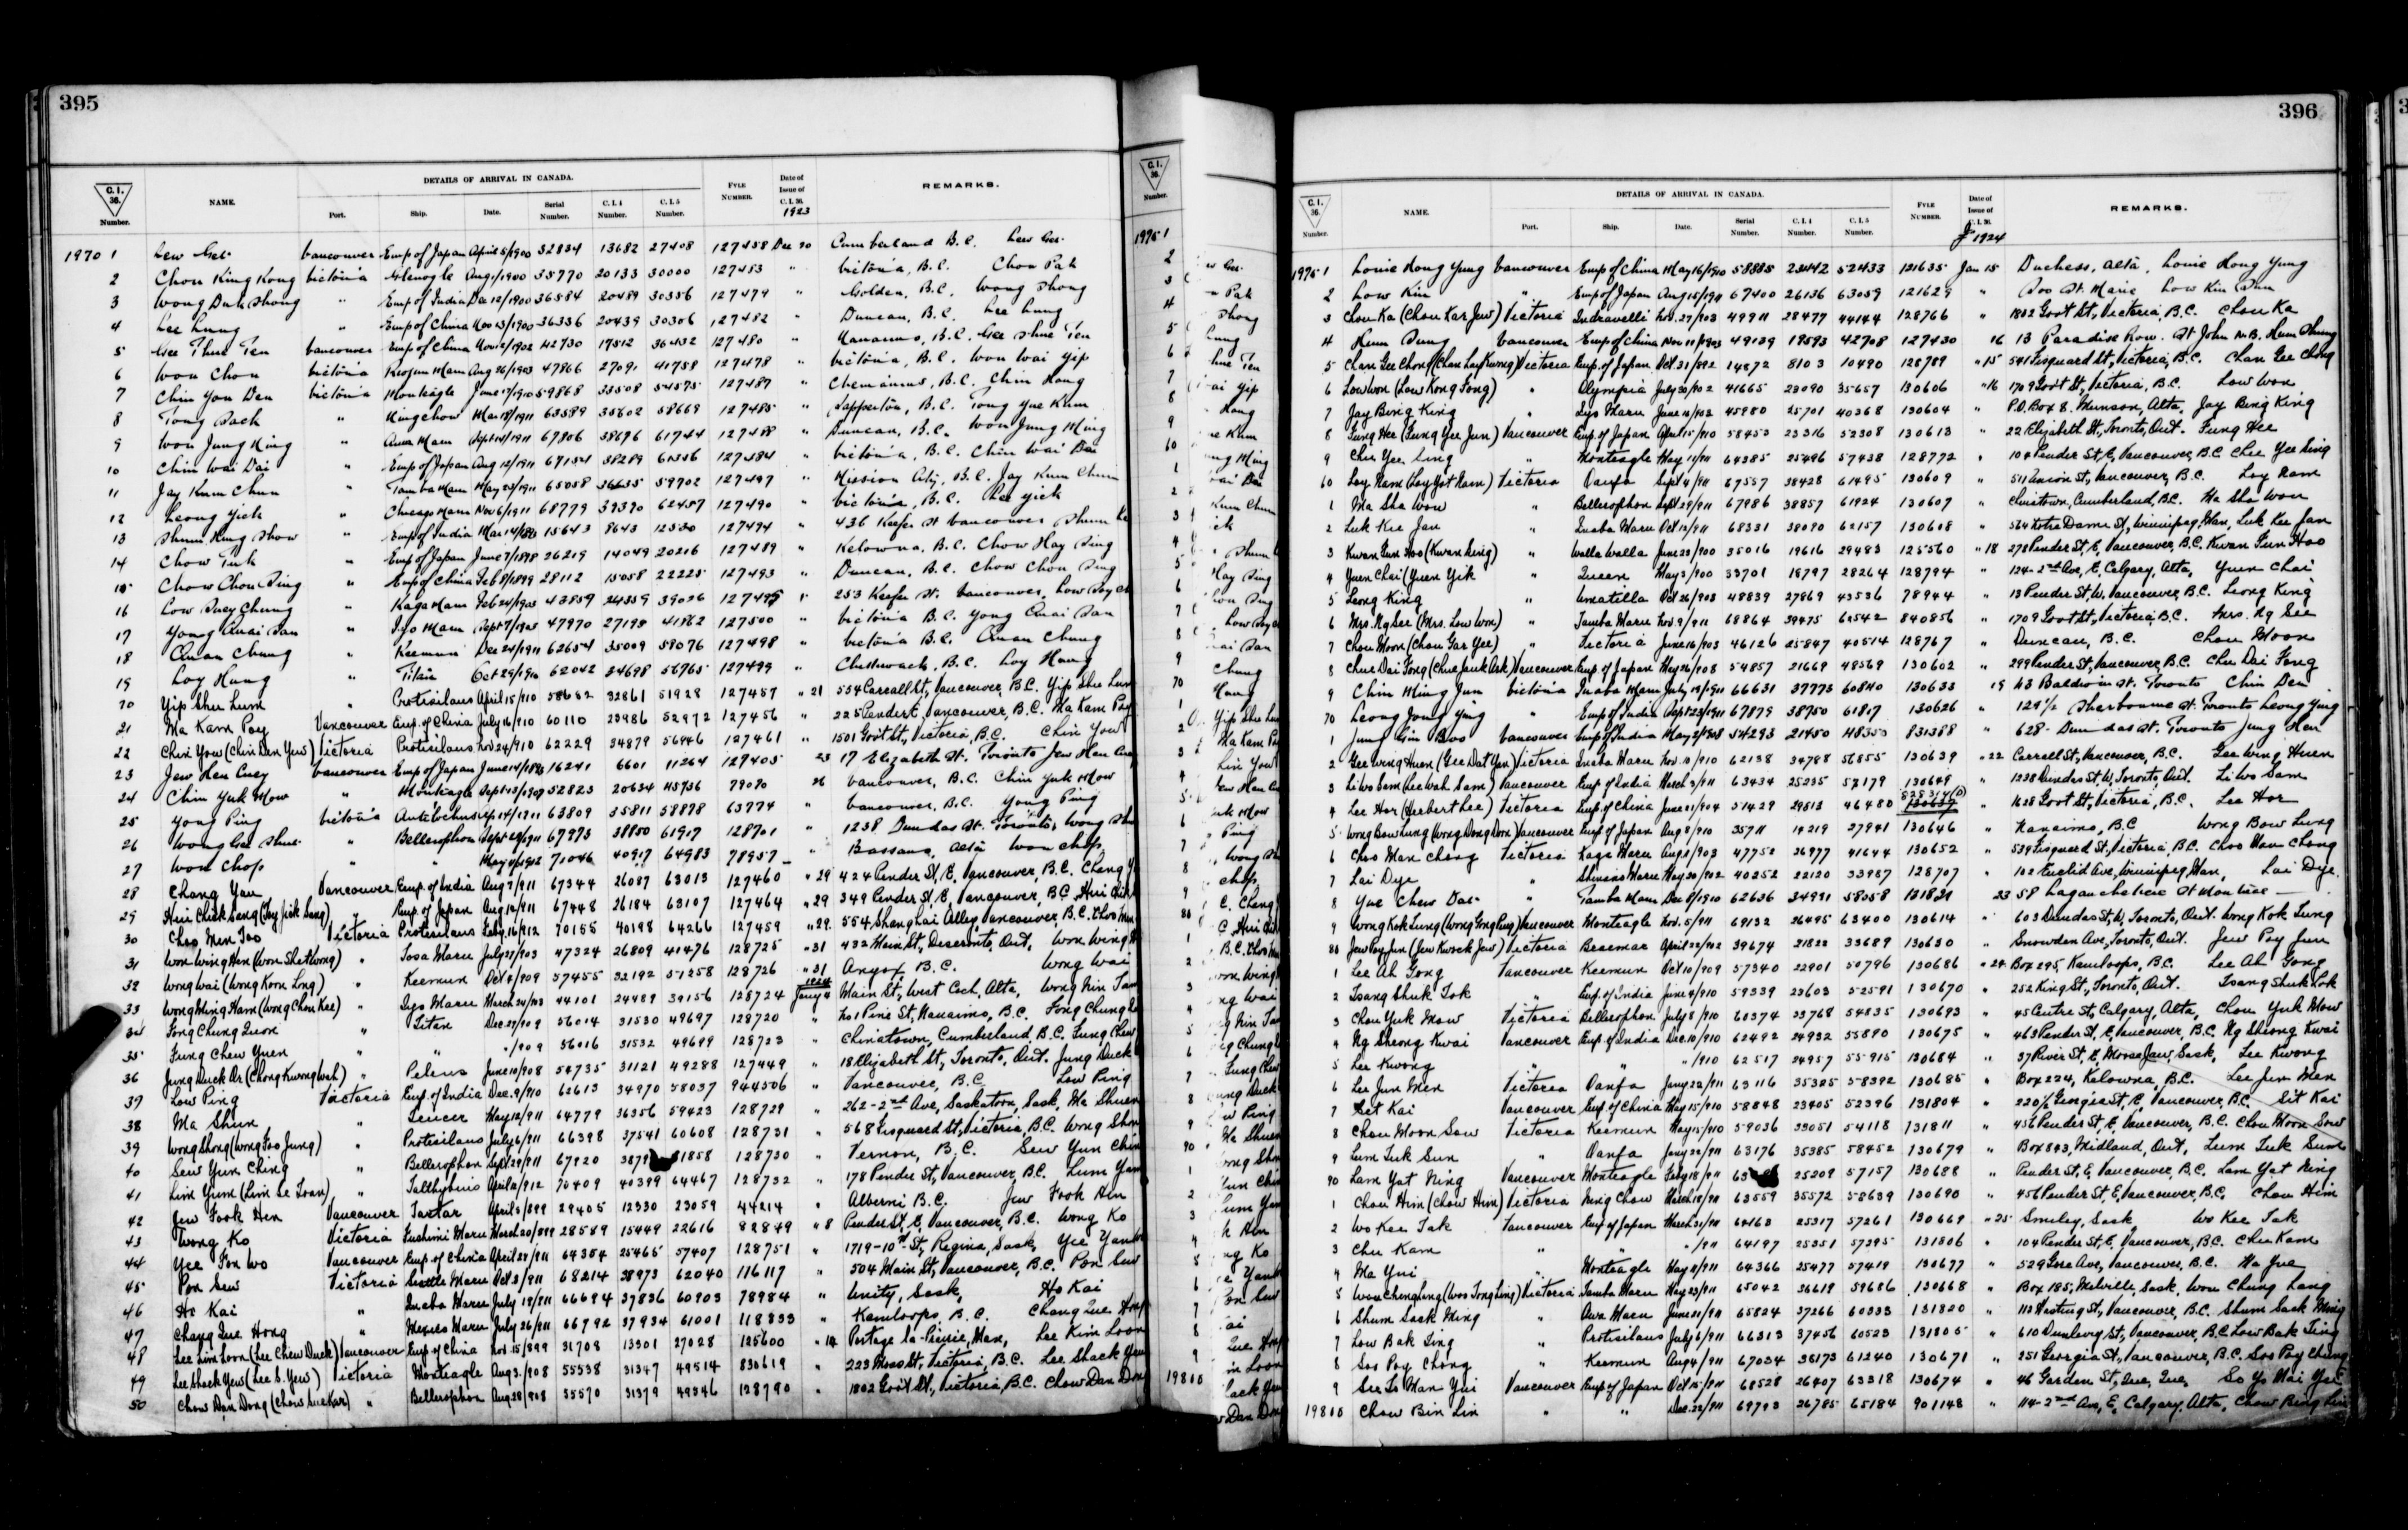 395
C.I. 36. Number.
NAME.
DETAILS OF ARRIVAL IN CANADA.
Port. Ship. Date. Serial Number. C.I.4 Number. C.I.5 Number.
FYLE NUMBER.
Date of Issue of C.I.36. 1923
REMARKS.
19701 Lew Gee Vancouver Emp of Japan April 5/1900 32834 13682 27408 127458 Dec 20 Cumberland B.C. Lew Gee
2 Chou King Kong Victoria Glenogle Aug 1/1900 35770 20133 30000 127483 " Victoria, B.C. Chou Pak
3 Wong Duk Shong " Emp of India Dec 12/1900 36584 20489 30356 127479 " Golden, B.C. Wong Shong
4 Lee Lung " Emp of China Nov 13/1900 36336 20439 30306 127482 " Duncan, B.C. Lee Lung
5 Gee Shue Ten Vancouver Emp of China Nov 2/1902 42730 17512 36432 127480 " Nanaimo, B.C. Gee Shue Ten
6 Won Chou Victoria Kiojun Maru Aug 26/1903 47866 27091 41758 127478 " Victoria, B.C. Won Wai Yip
7 Chin You Den Victoria Monteagle June 17/1910 59868 33508 54575 127487 " Chemainus, B.C. Chin Hong
8 Tong Back " Ningchow Mar 18/1911 63589 35602 58669 127485 " Sapperton, B.C. Tong Yue Kum
9 Won Jung Ming " Awa Maru Sept 14/1911 67806 38676 61744 127488 " Duncan, B.C. Won Jung Ming
10 Chin Wai Dai " Emp of Japan Aug 12/1911 67154 38289 61356 127484 " Victoria, B.C. Chin Wai Dai
11 Jay Kum Chun " Tamba Maru May 23/1911 65058 36635 59702 127497 " Mission City, B.C. Jay Kum Chun
12 Leong Yick " Chicago Maru Nov 6/1911 68779 39370 62437 127490 " Victoria, B.C. Lee Yick
13 Shum Hung Show " Emp of India Mar 14/1893 15643 8643 12530 127494 " 436 Keefer St Vancouver Shum
14 Chow Tuk " Emp of Japan June 7/1898 26219 14049 20216 127489 " Kelowna, B.C. Chow Hay Sing
15 Chow Chou Sing " Emp of China Feb 8/1899 28112 15058 22225 127493 " Duncan, B.C. Chow Chou Sing
16 Low Suey Chung " Kaga Maru Feb 24/1903 43859 24359 39026 127495 " 253 Keefer St. Vancouver, Low Suey
17 Yong Quai San " Iyo Maru Sept 7/1903 47970 27195 41862 127500 " Victoria B.C. Yong Quai San
18 Quan Chung " Keemun Dec 24/1911 62654 35009 58076 127498 " Victoria B.C. Quan Chung
19 Loy Hang " Titan Oct 29/1910 62042 34698 56765 127499 " Chilliwack, B.C. Loy Hang
20 Yip Shu Lum " Protesilaus April 15/910 58682 32861 51928 127457 " 21 554 Carrall St, Vancouver, B.C. Yip Shu Lum
21 Ma Kam Poy Vancouver Emp. of China July 16/910 60110 23986 52972 127456 " 225 Pender E, Vancouver, B.C. Ma Kam Poy
22 Chin You (Chin Den Yew) Victoria Protesilaus Nov 24/910 62229 34879 56946 127461 " 1501 Govt St, Victoria, B.C. Chin You
23 Jew Hen Cuey Vancouver Emp of Japan June 14/1893 16241 6601 11264 127405 23 17 Elizabeth St. Toronto Jew Hen
24 Chin Yuk Mow " Monteagle Sept 13/1907 52823 20634 45736 79070 26 Vancouver, B.C. Chin Yuk Mow
25 Yong Ping Victoria Antilochus Apl 14/1911 63809 35811 58878 63774 " Vancouver, B.C. Yong Ping
26 Wong Gee Shue " Bellerophon Sept 28/1911 67973 38850 61917 128701 " 1238 Dundas St. Toronto, Wong
27 Won Chop " " May 4/1912 71046 40917 64983 78957 " Bassano, Alta Won Chop
28 Chang Yau Vancouver Emp. of India Aug 7/911 67344 26087 63013 127460 " 29 424 Pender St, E, Vancouver, B.C. Chang
29 Hui Chick Sang (Joy Jick Sang) " Emp. of Japan Aug 12/911 67448 26184 63107 127464 " 29 349 Pender St. E, Vancouver, B.C. Hui
30 Choo Men Too Victoria Protesilaus Feby. 16/912 70155 40198 64266 127459 " 29 554 Shanghai Alley, Vancouver, B.C. Choo Men
31 Won Wing Hen (Won Shet Wong) " Tosa Maru July 27/903 47324 26809 41476 128725 " 31 432 Main St, Deseronto, Ont. Won Wing
32 Wong Wai (Wong Koon Long) " Keemun Oct 2/909 57455 32192 51258 128726 " 31 Anyox B.C. Wong Wai
33 Wong Ming Ham (Wong Chou Kee) " Iyo Maru March 24/903 44101 24489 39156 128724 1924 Jany 4 Main St, West Cech, Alta, Wong Nin Tam
34 Fong Chung Quon " Titan Dec. 29/909 56014 31530 49697 128720 " 201 Pine St, Nanaimo, B.C. Fong Chung
35 Fung Chew Yuen " " " /909 56016 31532 49699 128723 " Chinatown, Cumberland, B.C. Fung Chew
36 Jung Duck Or (Chong Kwong Wah) " Peleus June 10/908 54735 31121 49288 127449 " 18 Elizabeth St, Toronto, Ont. Jung Duck
37 Low Ping Victoria Emp. of India Dec. 9/910 62613 34970 58037 944506 " Vancouver, B.C. Low Ping
38 Ma Shun " Teucer May 12/911 64779 36356 59423 128729 " 262-2nd Ave, Saskatoon, Sask, Ma Shun
39 Wong Shong (Wong Foo Jung) " Protesilaus July 6/911 66398 37541 60608 128731 " 568 Fisguard St, Victoria, B.C. Wong Shong
40 Sew Yun Ching " Bellerophon Sept 29/911 67920 61858 128730 " Vernon, B.C. Sew Yun Ching
41 Lim Yum (Lim Se Loan) " Talthybius April 2/912 70409 40399 64467 128732 " 178 Pender St, Vancouver, B.C. Lum Yum
42 Jew Fook Hen Vancouver Tartar April 5/899 29405 12330 23059 44214 " Alberni B.C. Jew Fook Hen
43 Wong Ko Victoria Fushimi Maru March 20/899 28589 15449 22616 82849 " 8 Pender St, E, Vancouver, B.C. Wong Ko
44 Yee Fon Wo Vancouver Emp. of China April 27/911 64354 25465 57407 128751 " 1719-10th St, Regina, Sask, Yee
45 Pon Sew Victoria Seattle Maru Oct 3/911 68214 38973 62040 116117 " 504 Main St, Vancouver, B.C. Pon Sew
46 Ho Kai " Inaba Maru July 19/911 66694 37836 60903 78984 " Unity, Sask, Ho Kai
47 Chang Que Hong " Mexico Maru July 26/911 66792 37934 61001 118333 " Kamloops, B.C. Chang Que Hong
48 Lee Lim Loon (Lee Chew Duck) Vancouver Emp of China Nov. 15/899 31708 13301 27028 125600 " 14 Portage la Prairie, Man, Lee Kim Loon
49 Lee Shack Yew (Lee S. Yew) Victoria Monteagle Aug 3/908 55338 31347 49514 830619 " 223 Moss St, Victoria, B.C. Lee Shack Yew
50 Chow Dan Dong (Chow Sue Kar) " Bellerophon Aug 28/908 55570 31379 49546 128790 " 1802 Gov't St, Victoria, B.C. Chow Dan Dong
396
C.I. 36. Number.
NAME.
DETAILS OF ARRIVAL IN CANADA.
Port. Ship. Date. Serial Number. C.I.4 Number. C.I.5 Number.
FYLE NUMBER.
Date of Issue of C.I.36. 1924
REMARKS.
19751 Louie Hong Yung Vancouver Emp of China May 16/1910 58885 23442 52433 121635 Jan 15 Duchess, Alta, Louie Hong Yung
2 Low Kin " Emp of Japan Aug 15/1911 67400 26136 63059 121629 " Soo St. Marie Low Kin
3 Chou Ka (Chou Kar Jew) Victoria Indravelli Nov. 27/903 49911 28477 44144 128766 " 1802 Govt St, Victoria, B.C. Chou Ka
4 Hum Sung Vancouver Emp of China Nov 11/1903 49139 19593 42708 127430 16 13 Paradise Row. St John N.B. Hum Shung
5 Chan Gee Chong (Chan Lay Kwong) Victoria Emp. of Japan Oct. 31/892 14872 8103 10490 128789 " 15 541 Fisguard St, Victoria, B.C. Chan Gee Chong
6 Low Won (Low Kong Fong) " Olympia July 30/902 41665 23090 35657 130606 " 16 1709 Govt St, Victoria, B.C. Low Won
7 Jay Bing King " Iyo Maru June 12/903 45980 25701 40368 130604 " P.O. Box 8. Munson, Alta, Jay Bing King
8 Fung Hee (Fung Yee Jun) Vancouver Emp. of Japan April 15/910 58453 23316 52308 130613 " 22 Elizabeth St, Toronto, Ont. Fung Hee
9 Chu Yee Sing " Monteagle May 11/911 64385 25496 57438 128772 " 104 Pender St, E, Vancouver, B.C. Chu Yee Sing
60 Loy Nam (Loy Yat Nam) Victoria Oanfa Sept 4/911 67557 38428 61495 130609 " 511 Union St, Vancouver, B.C. Loy Nam
1 Ma Sha Won " Bellerophon Sept 29/911 67986 38857 61924 130607 " Chinatown, Cumberland, B.C. Ma Sha Won
2 Luk Kee Jan " Inaba Maru Oct 12/911 68331 39090 62157 130608 " 524 Notre Dame St, Winnipeg, Man, Luk Kee Jan
3 Kwan Fun Hoo (Kwan Sing) " Walla Walla June 23/900 35016 19616 29483 125560 " 18 278 Pender St, E, Vancouver, B.C. Kwan Fun Hoo
4 Yuen Chai (Yuen Yik " Queen May 3/900 33701 18797 28264 128794 " 124-2nd Ave, E, Calgary, Alta, Yuen Chai
5 Leong King " Umatilla Oct 26/903 48839 27869 43536 78944 " 13 Pender St, W, Vancouver, B.C. Leong King
6 Mrs. Ng See (Mrs. Low Won) " Tamba Maru Nov. 9/911 68864 39475 62542 840856 " 1709 Govt St, Victoria, B.C. Mrs. Ng See
7 Chou Moon (Chou Gar Yee) " Victoria June 16/903 46126 25847 40514 128767 " Duncan, B.C. Chou Moon
8 Chue Dai Fong (Chue Jauk Ark) Vancouver Emp. of Japan May 26/908 54857 21669 48569 130602 " 299 Pender St, Vancouver, B.C. Chu Dai Fong
9 Chin Ming Jun Victoria Inaba Maru July 18/1911 66631 37773 60840 130633 19 43 Baldwin St. Toronto Chin Den
70 Leong Jong Ying " Emp of India Sept 23/1911 67879 38750 61817 130626 " 129½ Sherbourne St. Toronto Leong Ying
1 Jung Gin Boo Vancouver Emp of India May 2/1908 54293 21450 48350 831388 " 628 Dundas St. Toronto Jung Hen
2 Gee Wing Huen (Gee Dat Yen) Victoria Inaba Maru Nov. 10/910 62138 34788 56855 130639 " 22 Carrall St, Vancouver, B.C. Gee Wing Huen
3 Li Wo Sam (Lee Wah Sam) Vancouver Emp of India March 3/911 63434 25235 57179 130649 " 1238 Dundas St, W, Toronto, Ont. Li Wo Sam
4 Lee Hor (Herbert Lee) Victoria Emp. of China June 21/904 51429 29513 46480 828314(D) 130637 " 1628 Govt St, Victoria, B.C. Lee Hor
5 Wong Bow Lung (Wong Dong Don) Vancouver Emp. of Japan Aug 8/910 35711 14219 27941 130646 " Nanaimo, B.C Wong Bow Lung
6 Choo Man Chong Victoria Kaga Maru Aug 2/903 47752 26977 41644 130652 " 539 Fisguard St, Victoria, B.C. Choo Man Chong
7 Lai Dye " Shinano Maru May 20/902 40252 22120 33987 128707 " 102 Euclid Ave, Winnipeg, Man, Lai Dye
8 Yue Chew Dai " Tamba Maru Dec 8/1910 62636 34991 58058 131821 23 58 Lagauchetiere St Montreal
9 Wong Kok Lung (Wong Gong Ping) Vancouver Monteagle Nov. 5/911 69132 26495 63400 130614 " 603 Dundas St, W, Toronto, Ont. Wong Kok Lung
80 Jew Poy Jun (Jew Kwock Jew) Victoria Braemar April 22/902 39674 21822 33689 130630 " Snowdon Ave, Toronto, Ont. Jew Poy Jun
1 Lee Ah Gong Vancouver Keemun Oct 10/909 57340 22901 50796 130686 " 24 Box 295, Kamloops, B.C. Lee Ah Gong
2 Tsang Shuk Tok " Emp. of India June 4/910 59339 23603 52591 130670 " 252 King St, Toronto, Ont. Tsang Shuk Tok
3 Chou Yuk Mow Victoria Bellerophon July 8/910 60374 33768 54835 130693 " 45 Centre St, Calgary, Alta, Chou Yuk Mow
4 Ng Sheong Kwai Vancouver Emp. of India Dec. 10/910 62492 24932 55890 130675 " 463 Pender St, E, Vancouver, B.C. Ng Sheong Kwai
5 Lee Kwong " " " /910 62517 24957 55915 130684 " 37 River St, E, Moose Jaw, Sask, Lee Kwong
6 Lee Jun Men Victoria Oanfa Jany 22/911 63116 35325 58392 130685 " Box 224, Kelowna, B.C. Lee Jun Men
7 Sit Kai Vancouver Emp. of China May 15/910 58848 23405 52396 131804 " 220½ Georgia St, E, Vancouver, B.C. Sit Kai
8 Chou Moon Sow Victoria Keemun May 15/910 59036 33051 54118 131811 " 456 Pender St, E, Vancouver, B.C. Chou Moon Sow
9 Lum Tuk Sun " Oanfa Jany 22/911 63176 35385 58452 130679 " Box 803, Midland, Ont, Lum Tuk Sun
90 Lam Yat Ning Vancouver Monteagle Feby 18/911 63 25209 57157 130688 " Pender St, E, Vancouver, B.C. Lam Yat Ning
1 Chou Him (Chow Him) Victoria Ning Chow March 18/911 63559 35572 58639 130690 " 456 Pender St, E, Vancouver, B.C. Chou Him
2 Wo Kee Tak Vancouver Emp of Japan March 31/911 64163 25317 57261 130669 " 25 Smiley, Sask Wo Kee Tak
3 Chu Kam " " " /911 64197 25351 57295 131806 " 104 Pender St, E, Vancouver, B.C. Chu Kam
4 Ma Yui " Monteagle May 11/911 64366 25477 57419 130677 " 529 Gore Ave, Vancouver, B.C. Ma Yue
5 Won Ching Ling (Woo Tong Ling) Victoria Tamba Maru May 23/911 65042 36619 59686 130668 " Box 185, Melville, Sask, Won Ching Lang
6 Shum Sack Ming " Awa Maru June 21/911 65824 37266 60333 131820 " 112 Hastings St, Vancouver, B.C. Shum Sack Ming
7 Low Bak Ting " Protesilaus July 6/911 66313 37456 60523 131805 " 610 Dunlevy St, Vancouver, B.C. Low Bak Ting
8 Soo Poy Chong " Keemun Aug 4/911 67034 38173 61240 130671 " 251 Georgia St, Vancouver, B.C. Soo Poy Chong
9 See To Man Yui Vancouver Emp of Japan Oct 15/911 68528 26407 63318 130674 " 46 Garden St, Que, Que, So Yo Mai Yue
19800 Chow Bin Lin " " Dec. 22/911 69793 26785 65184 901148 " 114-2nd Ave, E, Calgary, Alta, Chow Bing Lin